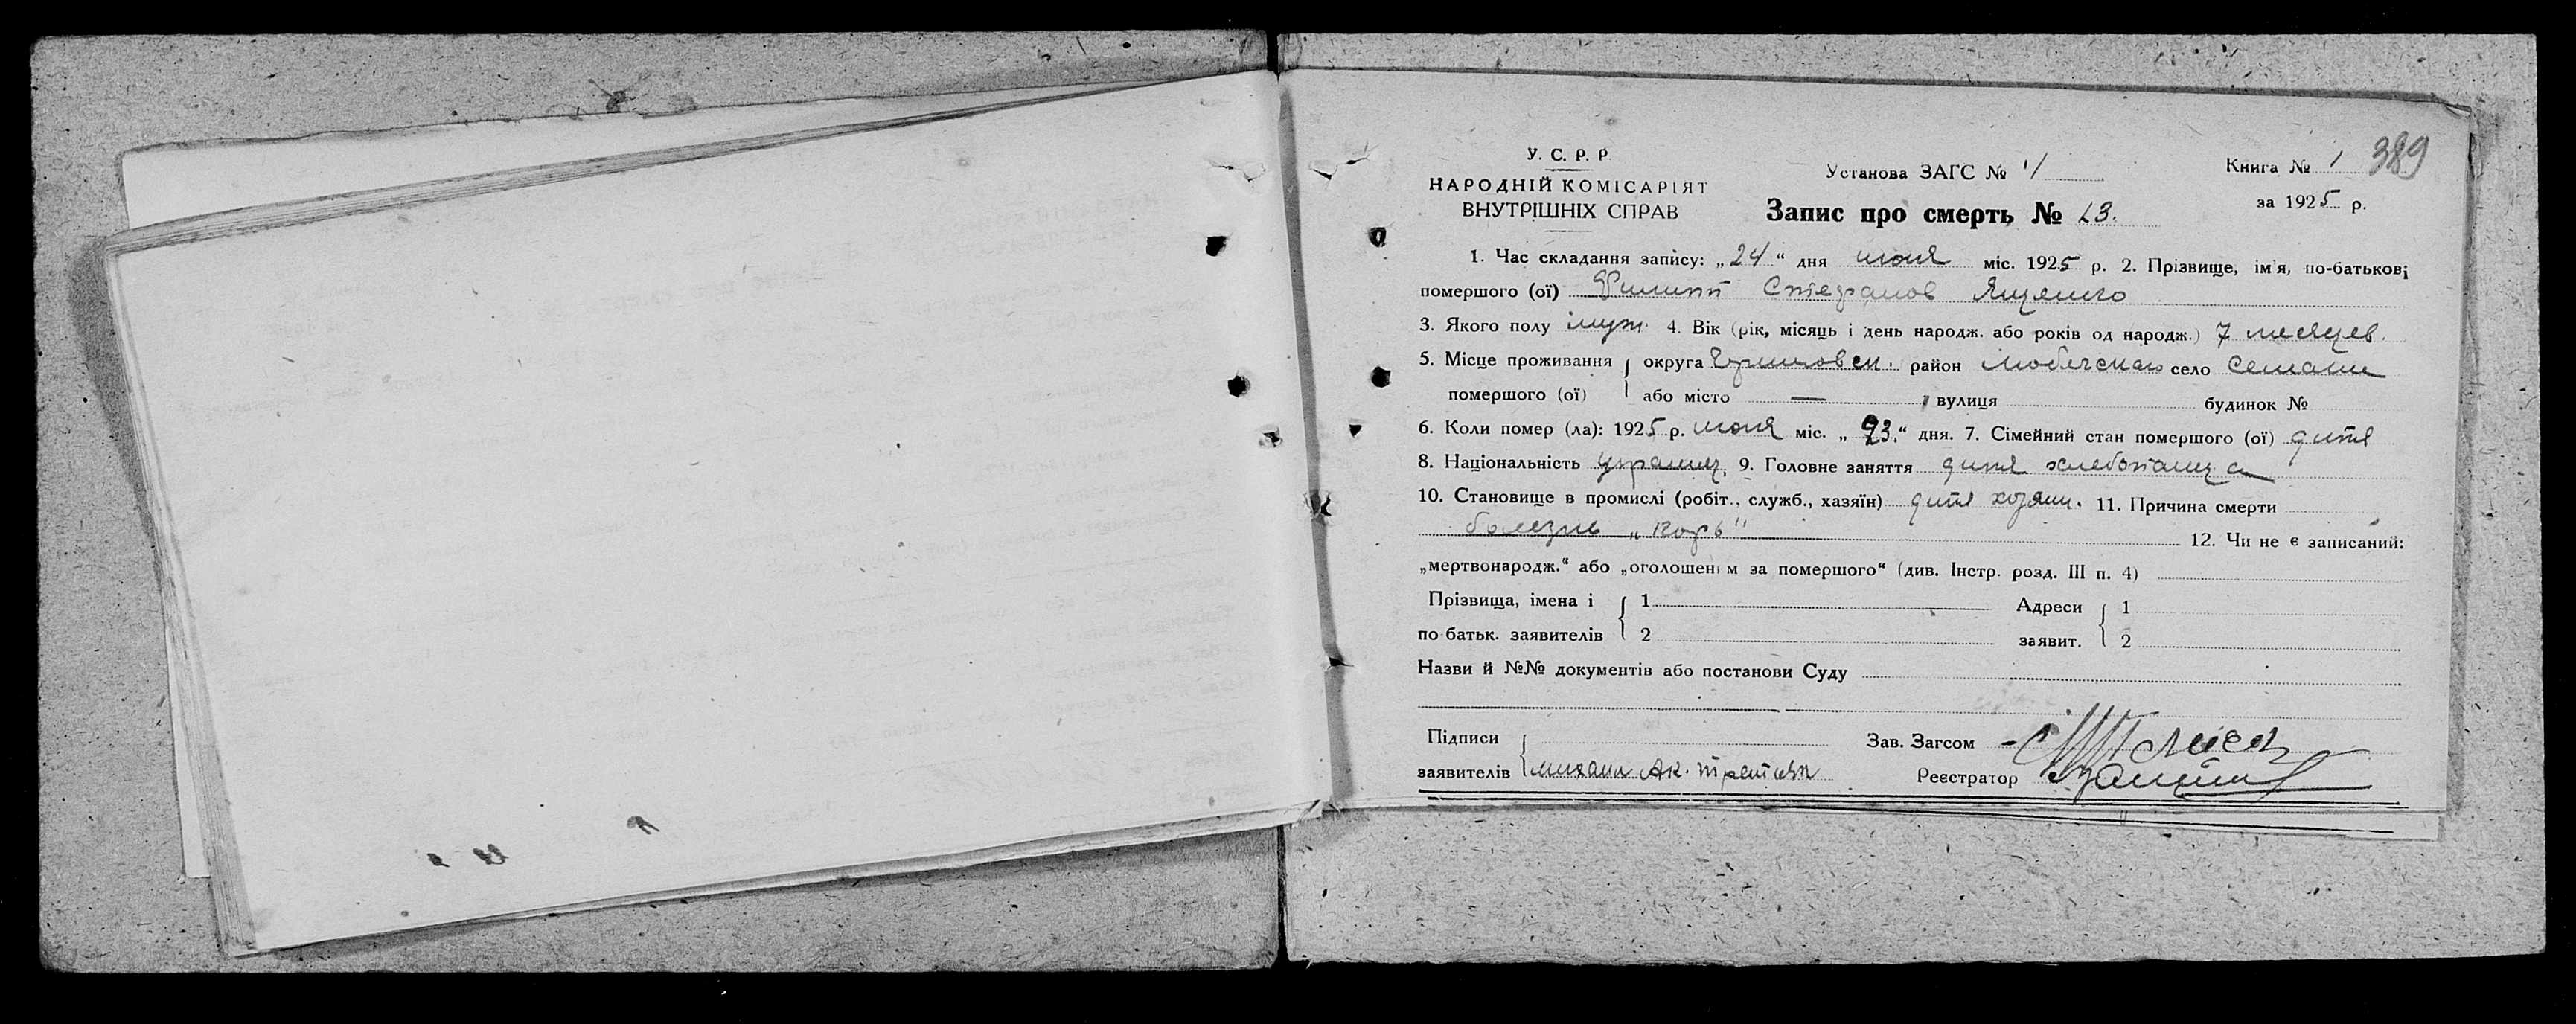 389
У. С. Р. Р.
НАРОДНІЙ КОМІСАРІЯТ
ВНУТРІШНІХ СПРАВ
Установа ЗАГС №
Книга № 1
за 1925 р.
Запис про смерть №
1. Час складання запису: „24“ дня июня міс. 1925 р. 2. Прізвище, ім'я, по-батькові
помершого (ої) Филипп Стефанов Ященко
3. Якого полу муж. 4. Вік (рік, місяць і день народж. або років од народж.) 7 месяцев.
5. Місце проживання округа Черниговск. район Любечскаго село Семаки
помершого (ої) або місто — вулиця будинок №
6. Коли помер (ла): 1925 р. июня міс. „23.“ дня. 7. Сімейний стан помершого (ої) дитя
8. Національність украинец, 9. Головне заняття дитя хлебопашца
10. Становище в промислі (робіт., служб., хазяїн) дитя хозяин. 11. Причина смерти
болезнь „корь"
12. Чи не є записаний:
„мертвонародж.“ або „оголошеним за помершого“ (див. Інстр. розд. III п. 4)
Прізвища, імена і 1 Адреси 1
по батьк. заявителів 2 заявит. 2
Назви й №№ документів або постанови Суду
Підписи Зав. Загсом
заявителів Михаил Ак. Реєстратор